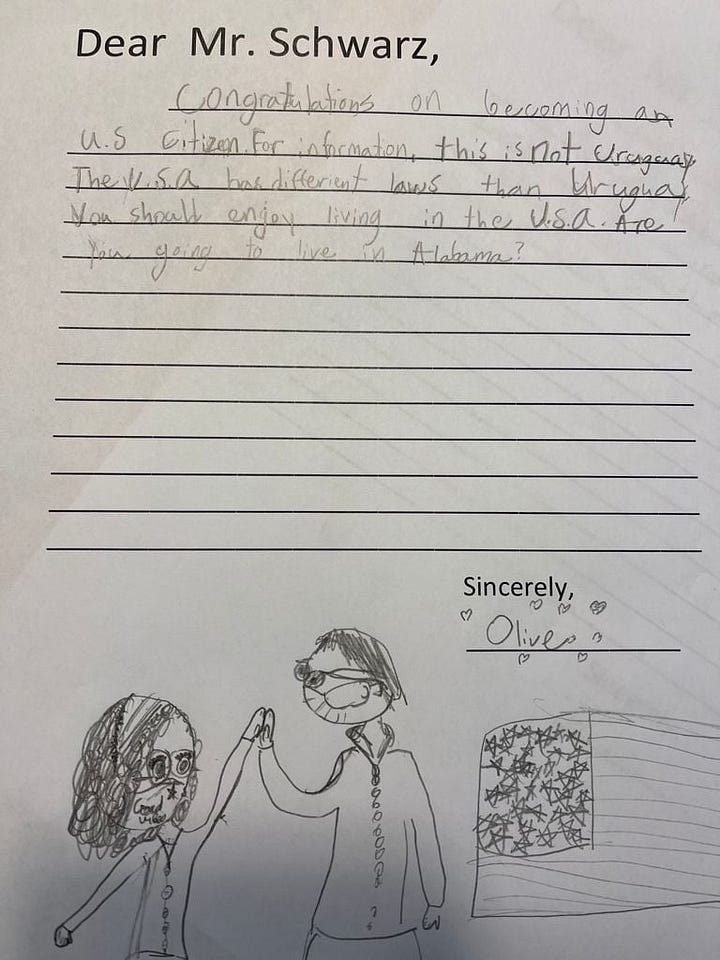 Dear Mr. Schwarz,
Congratulations on becoming an
U.S Citizen. For information, this is not Uruguay.
The U.S.A has different laws than Uruguay.
You should enjoy living in the U.S.A. Are
You going to live in Alabama?
Sincerely,
Olive
Good
vibes